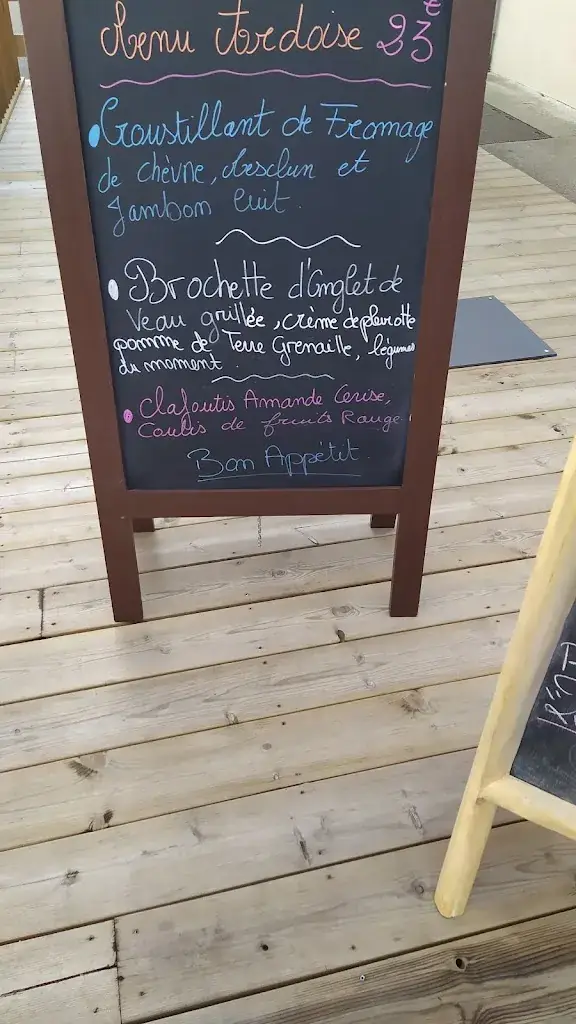 Menu Ardoise 23 €
Croustillant de Fromage
de chèvre, Mesclun et
Jambon Cuit.
Brochette d'Onglet de
Veau grillée, crème de pleurotte
pomme de Terre Grenaille, légumes
du moment.
Clafoutis Amande Cerise,
Coulis de fruits Rouge.
Bon Appétit.